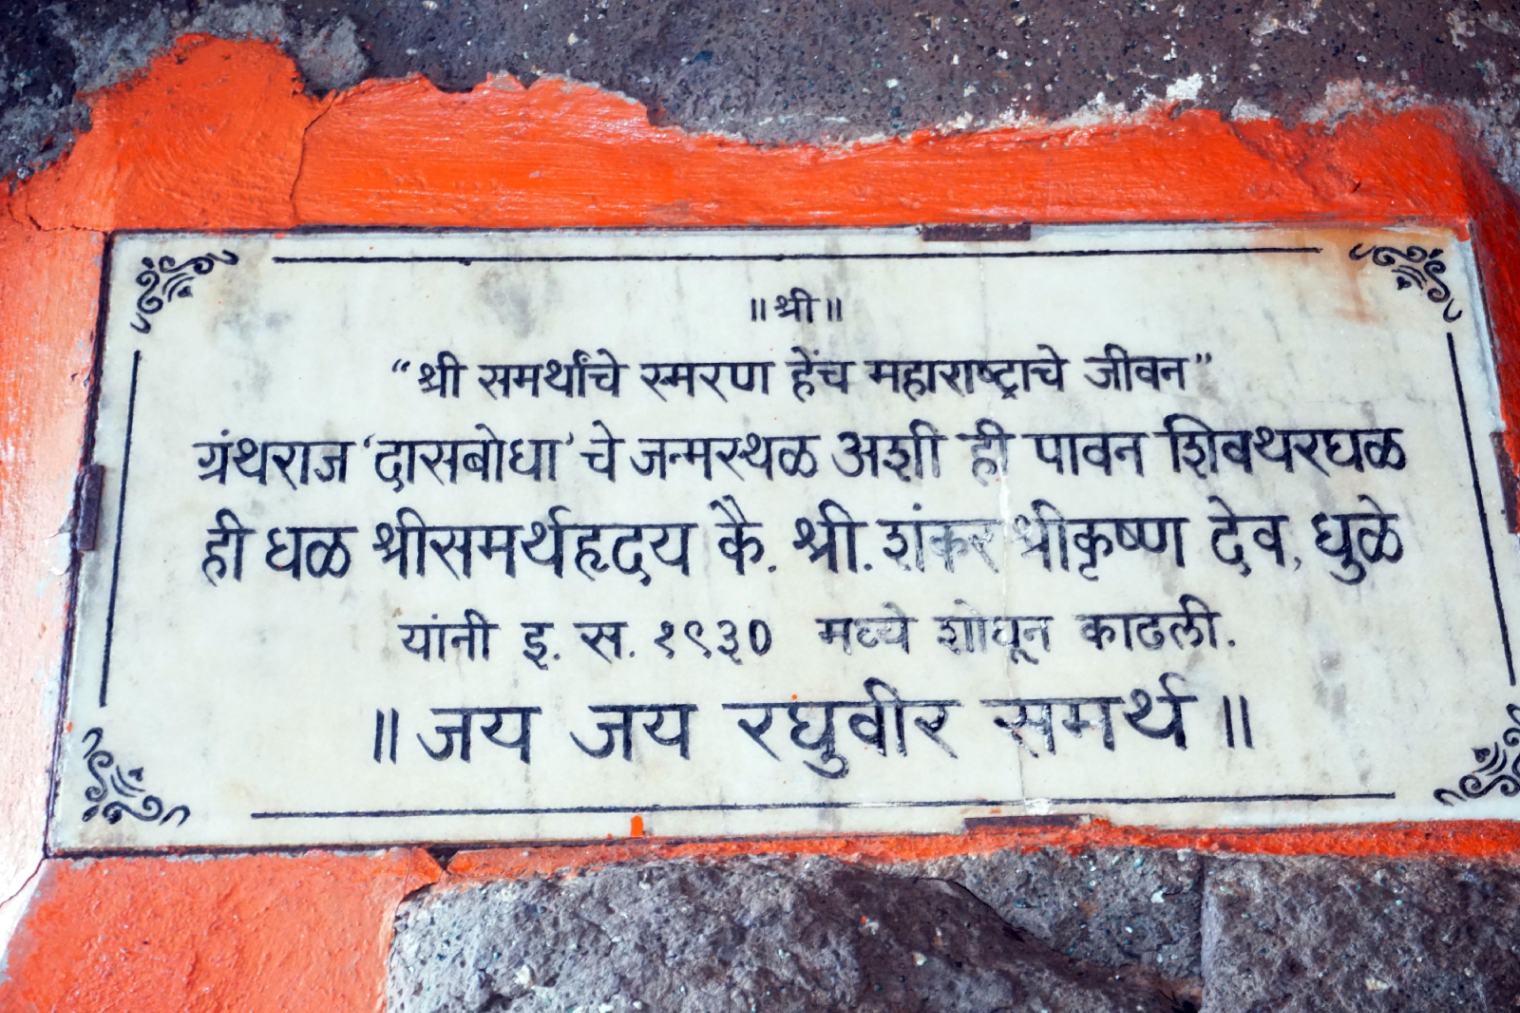 ॥ श्री ॥
“श्री समर्थांचे स्मरण हेंच महाराष्ट्राचे जीवन”
ग्रंथराज ‘दासबोधा’ चे जन्मस्थळ अशी ही पावन शिवथरघळ
ही घळ श्रीसमर्थहृदय कै. श्री. शंकर श्रीकृष्ण देव, धुळे
यांनी इ. स. १९३० मध्ये शोधून काढली.
॥ जय जय रघुवीर समर्थ ॥